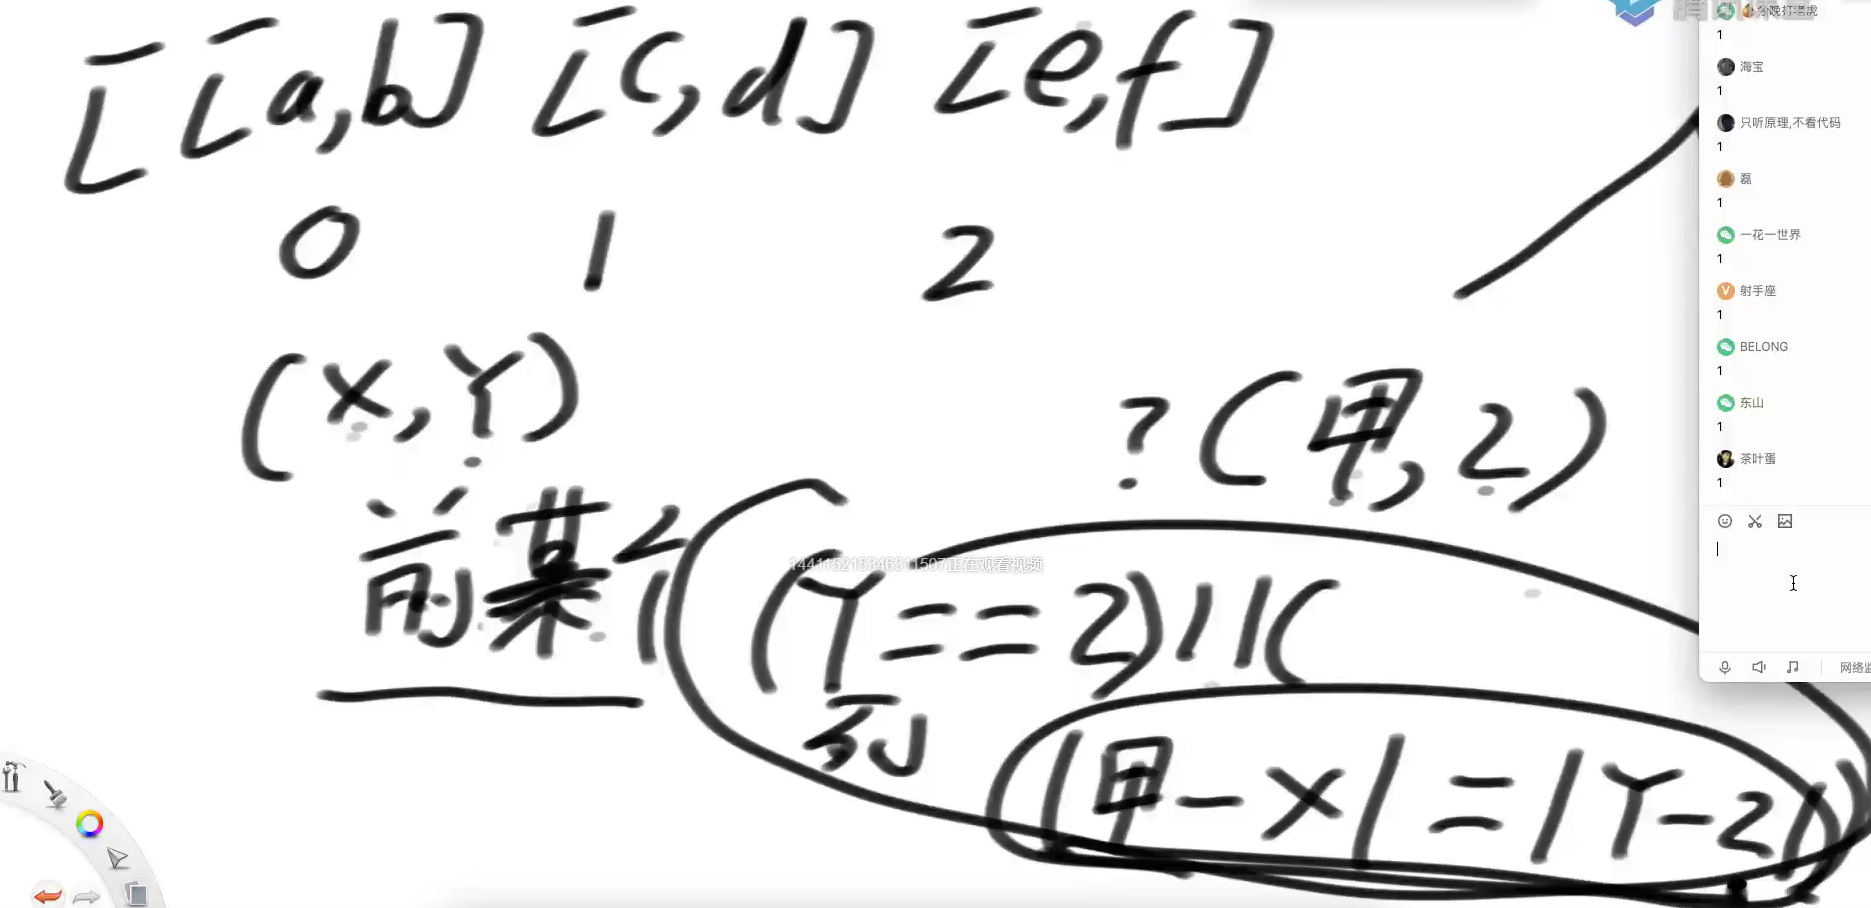 [[a,b] [c,d] [e,f]
0 1 2
(X,Y)
?(甲,2)
前某个
(Y==2)||(
列
|甲-X|=|Y-2|))
144115215346311507正在观看视频
今晚打老虎
1
海宝
1
只听原理,不看代码
1
磊
1
一花一世界
1
V 射手座
1
BELONG
1
东山
1
茶叶蛋
1